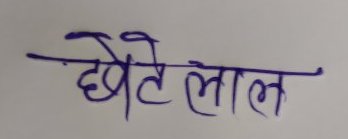 छोटे लाल